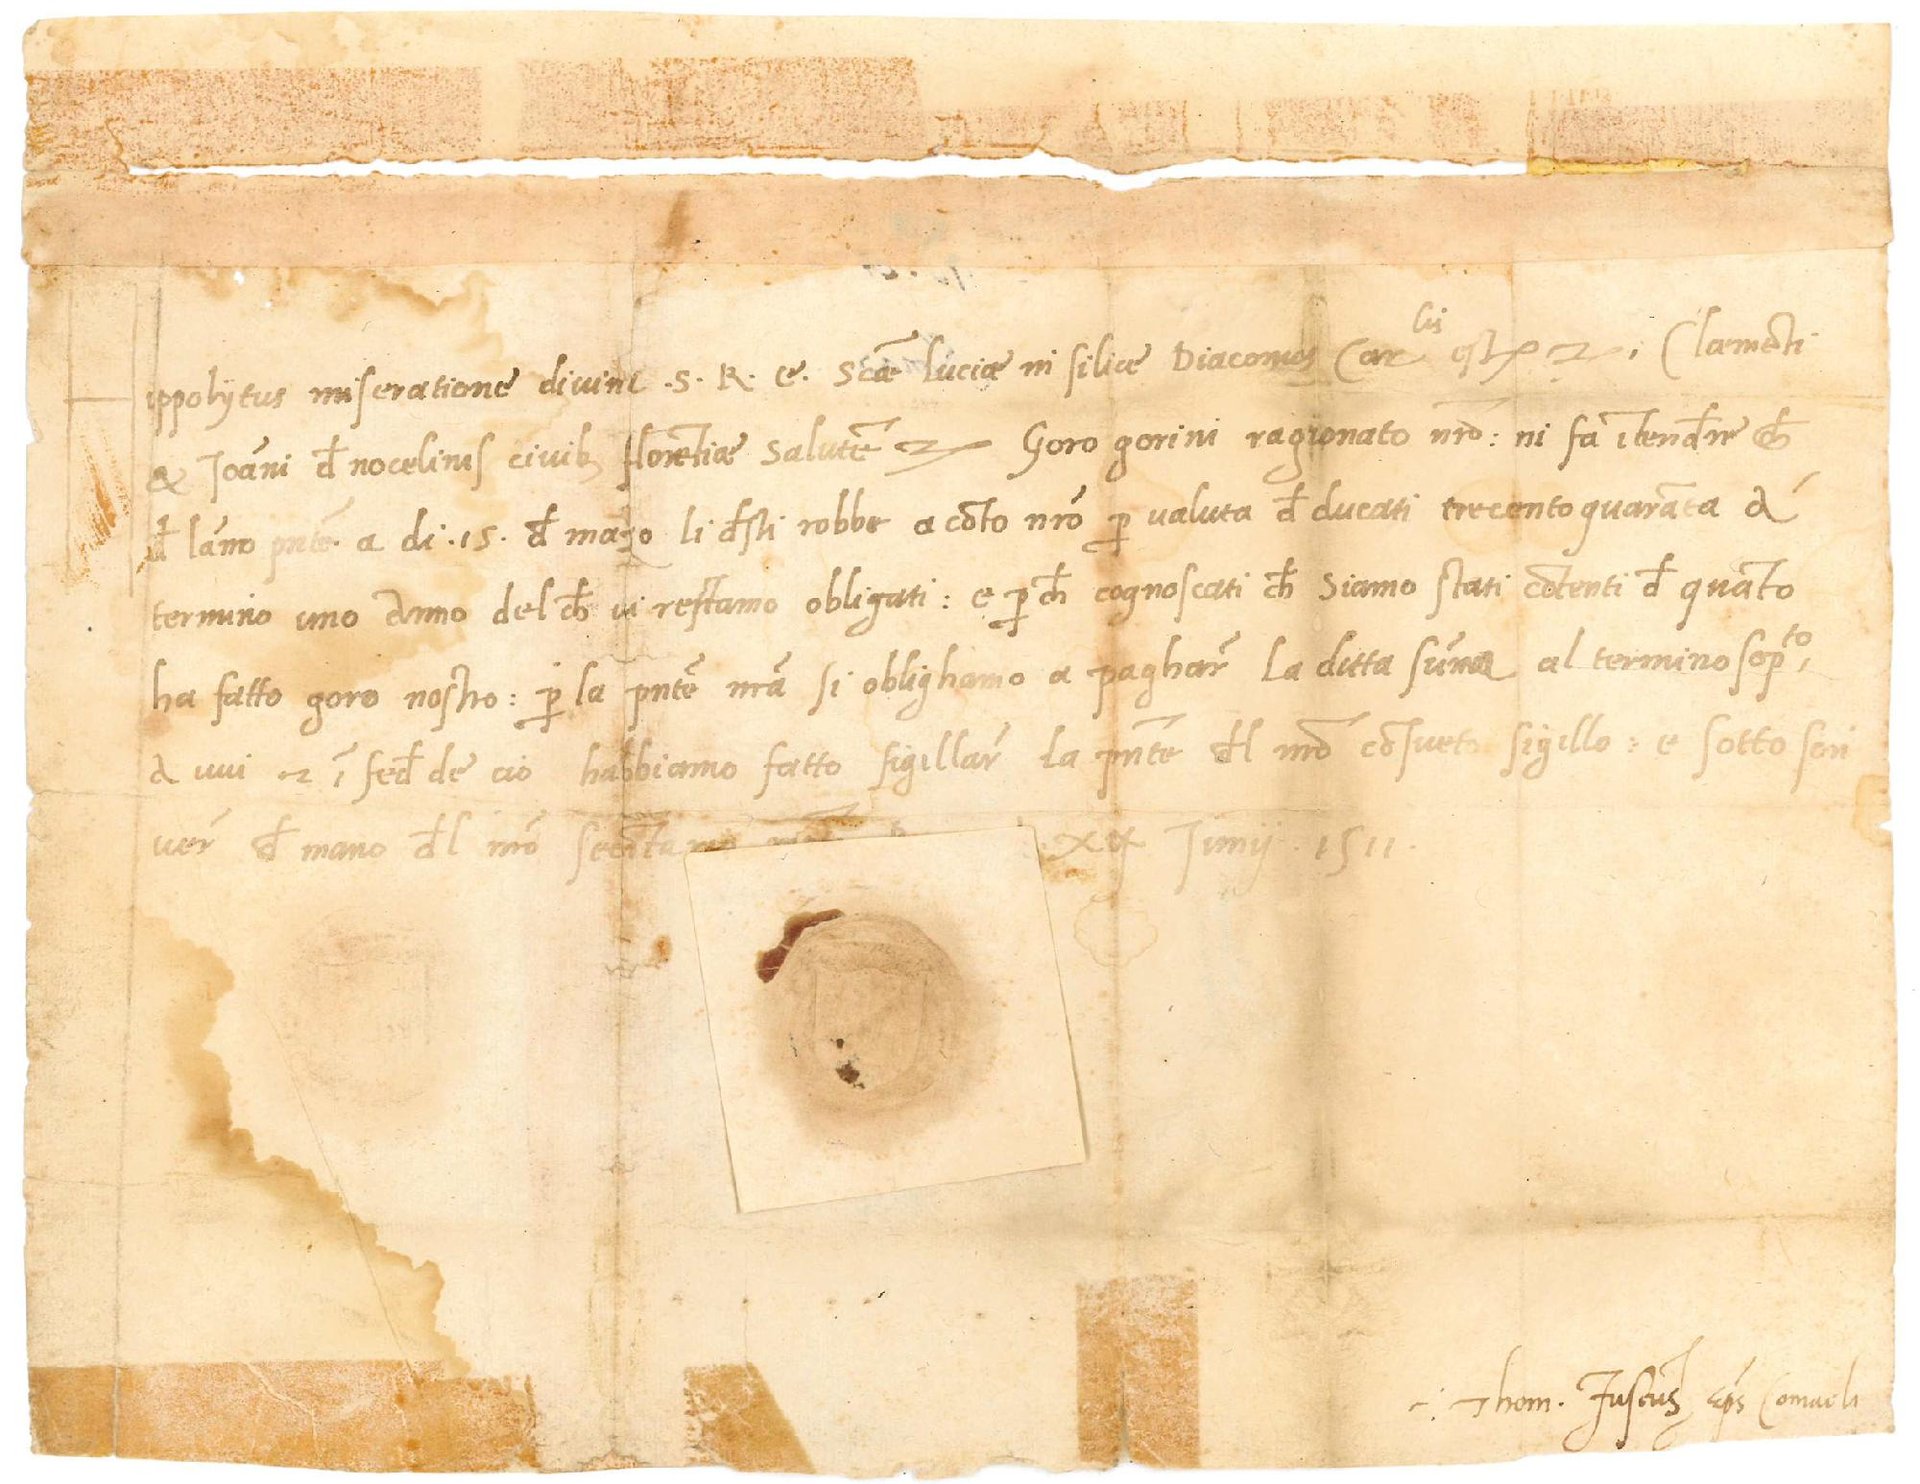 Hippolytus miseratione divine .S. R. E. Scāe Luciae in silice Diaconus Carlis est 2. Clamēti
& Joāni đ nocelinis civib florētiae Salutē Goro gorini ragionato nrō: ni fa ītend̄re
đ lāno pn̄te. a di .15. đ mazo li robbe a cōto nrō p valuta đ ducati trecentoquarāta A
termino uno Anno del ch̄ vi restamo obligati: e p ch̄ cognoscati ch̄ Siamo stati cōtenti đ quāto
ha fatto goro nostro: p la pn̄te nrā si oblighamo a paghar̄ La ditta sūma al termino sop.to
A vui ī fed de cio habbiamo fatto sigillar̄ La pn̄te đl nrō cōsueto sigillo: e sotto scri
ver̄ đ mano đl nrō Junij. 1511.
Thom. Fuscus Ep̄s Comacli